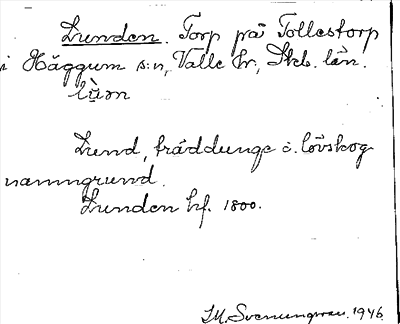 Lunden. Torp på Tollestorp
i Häggum s:n, Valle hr, Skb. län.
Lund, träddunge i lövskog
namngrund.
Lunden hf. 1800.
S.M. Svenungsson. 1946.